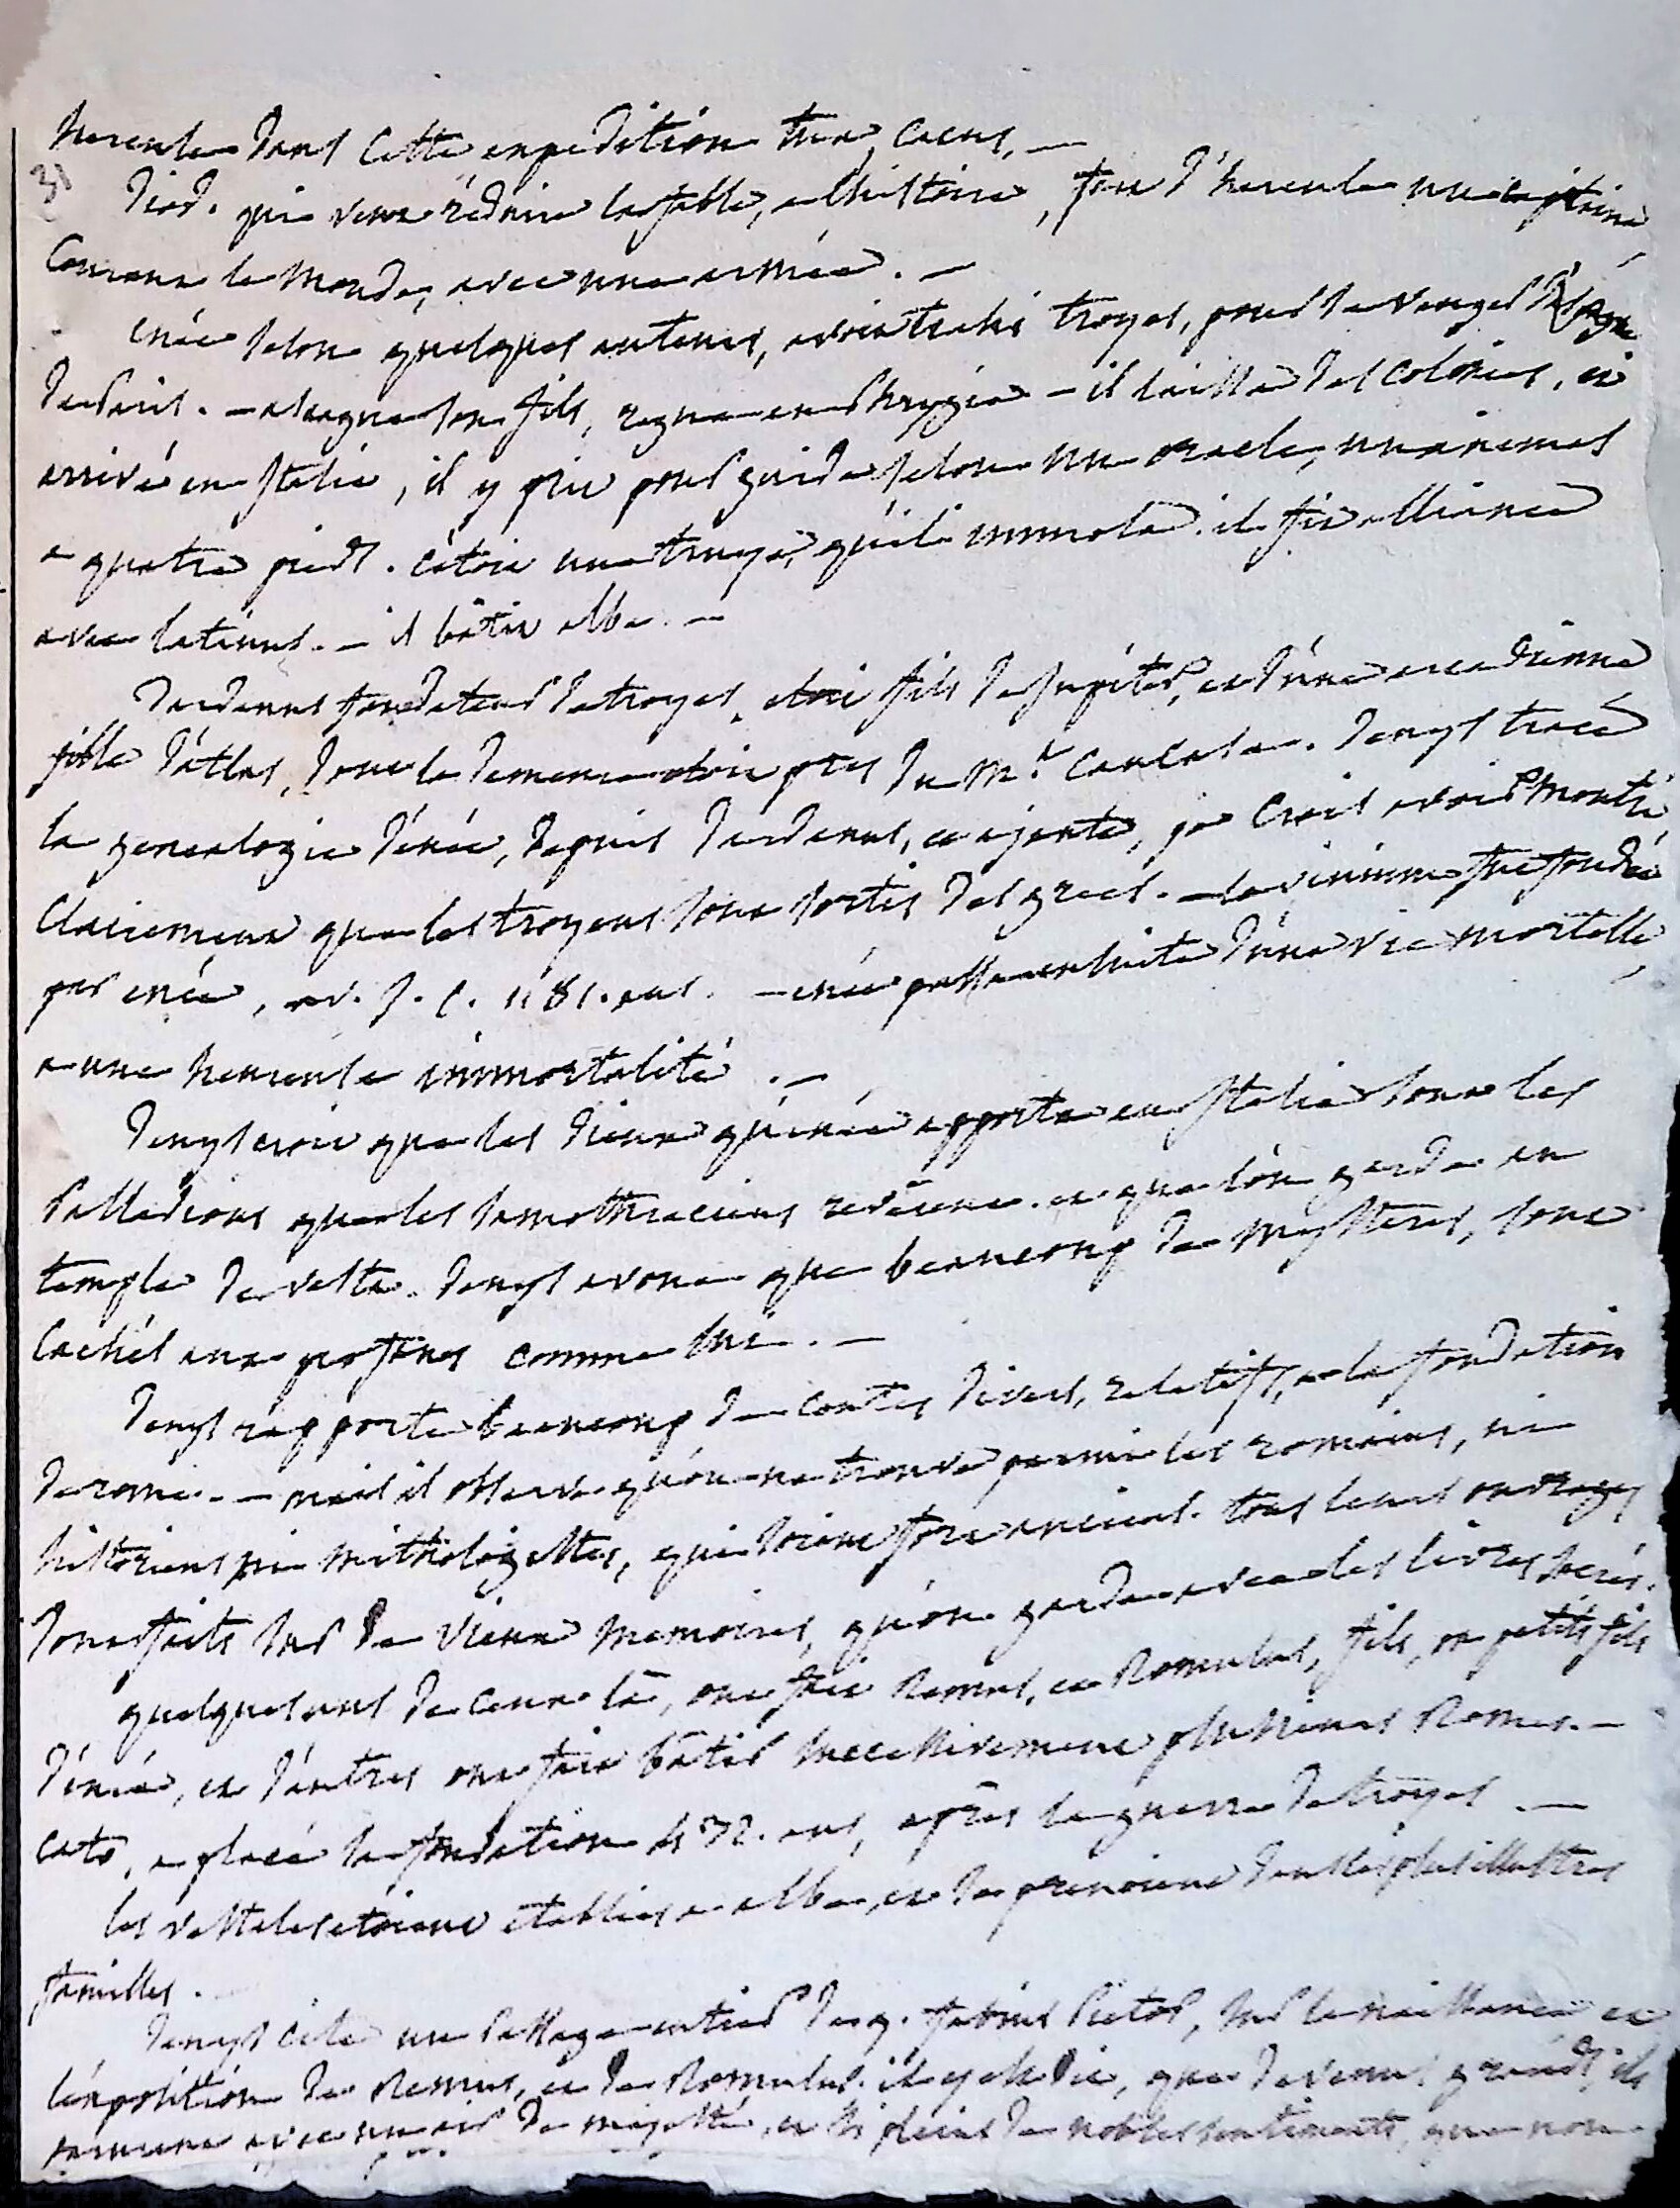 hercule dans cette expedition tua cacus, —
31
Diod. qui veut réduire la fable, a l'histoire, fait d'hercule un capitaine
Courant le monde, avec une armée. —
enée selon quelques auteurs, avoit trahi troyes, pour se venger
de Paris. — ascagne son fils, regna en Phrygie — il laissa des colonies, et
arrivé en Italie, il y prit pour guide selon un oracle, un animal
a quatre pieds. c'étoit une truye, qu'il immola. il fit alliance
avec latinus. — il bâtit albe. —
Dardanus fondateur de troyes, étoit fils de Jupiter, et d'une arcadienne
fille d'atlas, dont la demeure étoit près du Mt. Caucase. Denys trace
la genealogie d'énée, depuis Dardanus, et ajoute, je crois avoir montré
clairement que les troyens sont sortis des grecs. — lavinium fut fondée
par enée, av. J. C. 1181. ans. — enée passa ensuite d'une vie mortelle
a une heureuse immortalité. —
Denys croit que les dieux qu'énée apporta en Italie sont les
Palladions que les samothraciens revèrent. et que l'on garde au
temple de vesta. Denys avoue que beaucoup de mystères, sont
cachés aux profanes comme lui. —
Denys rapporte beaucoup de contes divers, relatifs, a la fondation
de rome. — mais il observe qu'on ne trouve parmi les romains, ni
historiens ni mithologistes, qui soient fort anciens. tous leurs ouvrages
sont faits sur de vieux memoires, qu'on garde avec les livres sacrés.
quelques uns de ceux là, ont fait Remus, et Romulus, fils, ou petits fils
d'énée, et d'autres ont fait bâtir successivement plusieurs Romes. —
cato, a placé la fondation 432. ans, après la guerre de troyes. —
les vestales étoient etablies a albe, et se prenoient dans les plus illustres
familles.
Denys cite un passage entier de q. fabius Pictor, sur la naissance et
l'exposition de Remus, et de Romulus. il y est dit, que devenus grands, ils
avec un air de majesté, et si pleins de nobles sentiments, que non